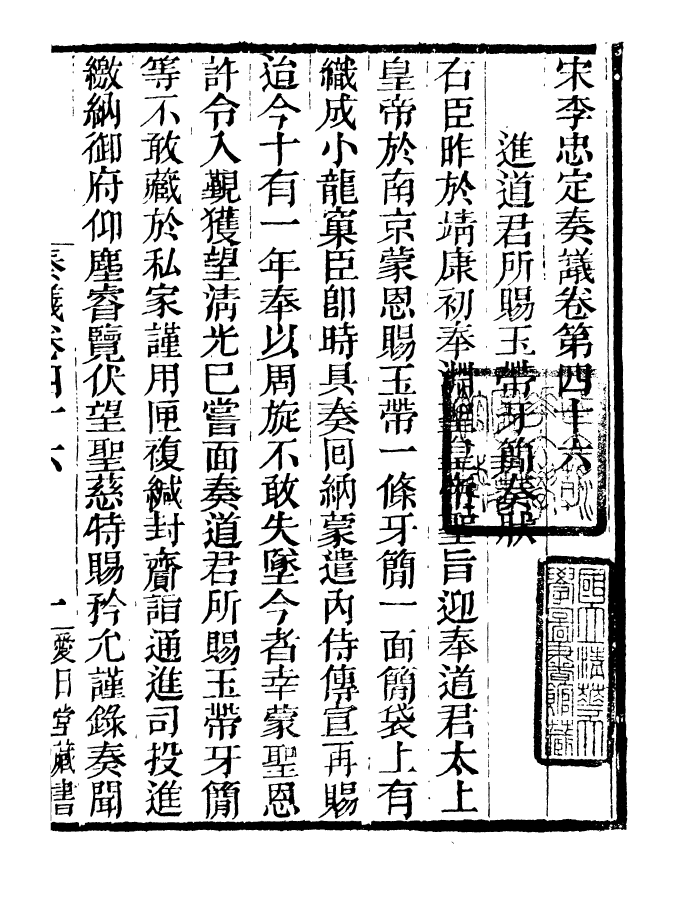 宋李忠定奏議卷第四十六
進道君所賜玉帶牙簡奏狀
右臣昨於靖康初奉淵聖皇帝聖旨迎奉道君太上
皇帝於南京蒙恩賜玉帶一條牙簡一面簡袋上有
織成小龍窠臣卽時具奏囘納蒙遣內侍傳宣再賜
迨今十有一年奉以周旋不敢失墜今者幸蒙聖恩
許令入覲獲望淸光已嘗面奏道君所賜玉帶牙簡
等不敢藏於私家謹用匣複緘封齎詣通進司投進
繳納御府仰塵睿覽伏望聖慈特賜矜允謹錄奏聞
奏議卷四十六 一 愛日堂藏書
國立淸華大
學圖書館藏